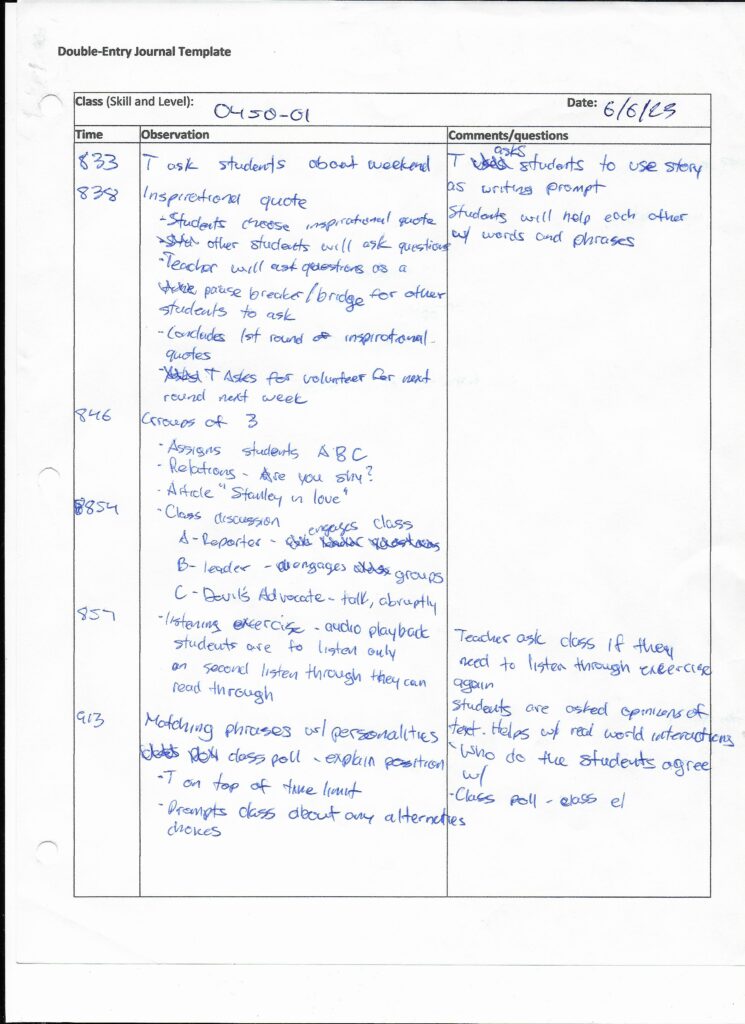 Double-Entry Journal Template
Class (Skill and Level): 0450-01
Date: 6/6/23
Time Observation Comments/questions
833 T ask students about weekend
838 Inspirational quote
- Students choose inspirational quote
- other students will ask questions
- Teacher will ask questions as a
pause breaker/bridge for other
students to ask
- Concludes 1st round of inspirational
quotes
- T Asks for volunteer for next
round next week
T asks students to use story
as writing prompt
Students will help each other
w/ words and phrases
846 Groups of 3
- Assigns students ABC
- Relations - Are you shy?
- Article "Stanley in love"
8854 - Class discussion
A - Reporter - engages class
B - leader - engages groups
C - Devil's Advocate - talk, abruptly
857 - listening exercise - audio playback
students are to listen only
on second listen through they can
read through
Teacher ask class if they
need to listen through exercise
again
913 Matching phrases w/ personalities
class poll - explain position
- T on top of time limit
- Prompts class about any alternatives
choices
Students are asked opinions of
text. Helps w/ real world interactions
- Who do the students agree
w/
- Class poll - class el